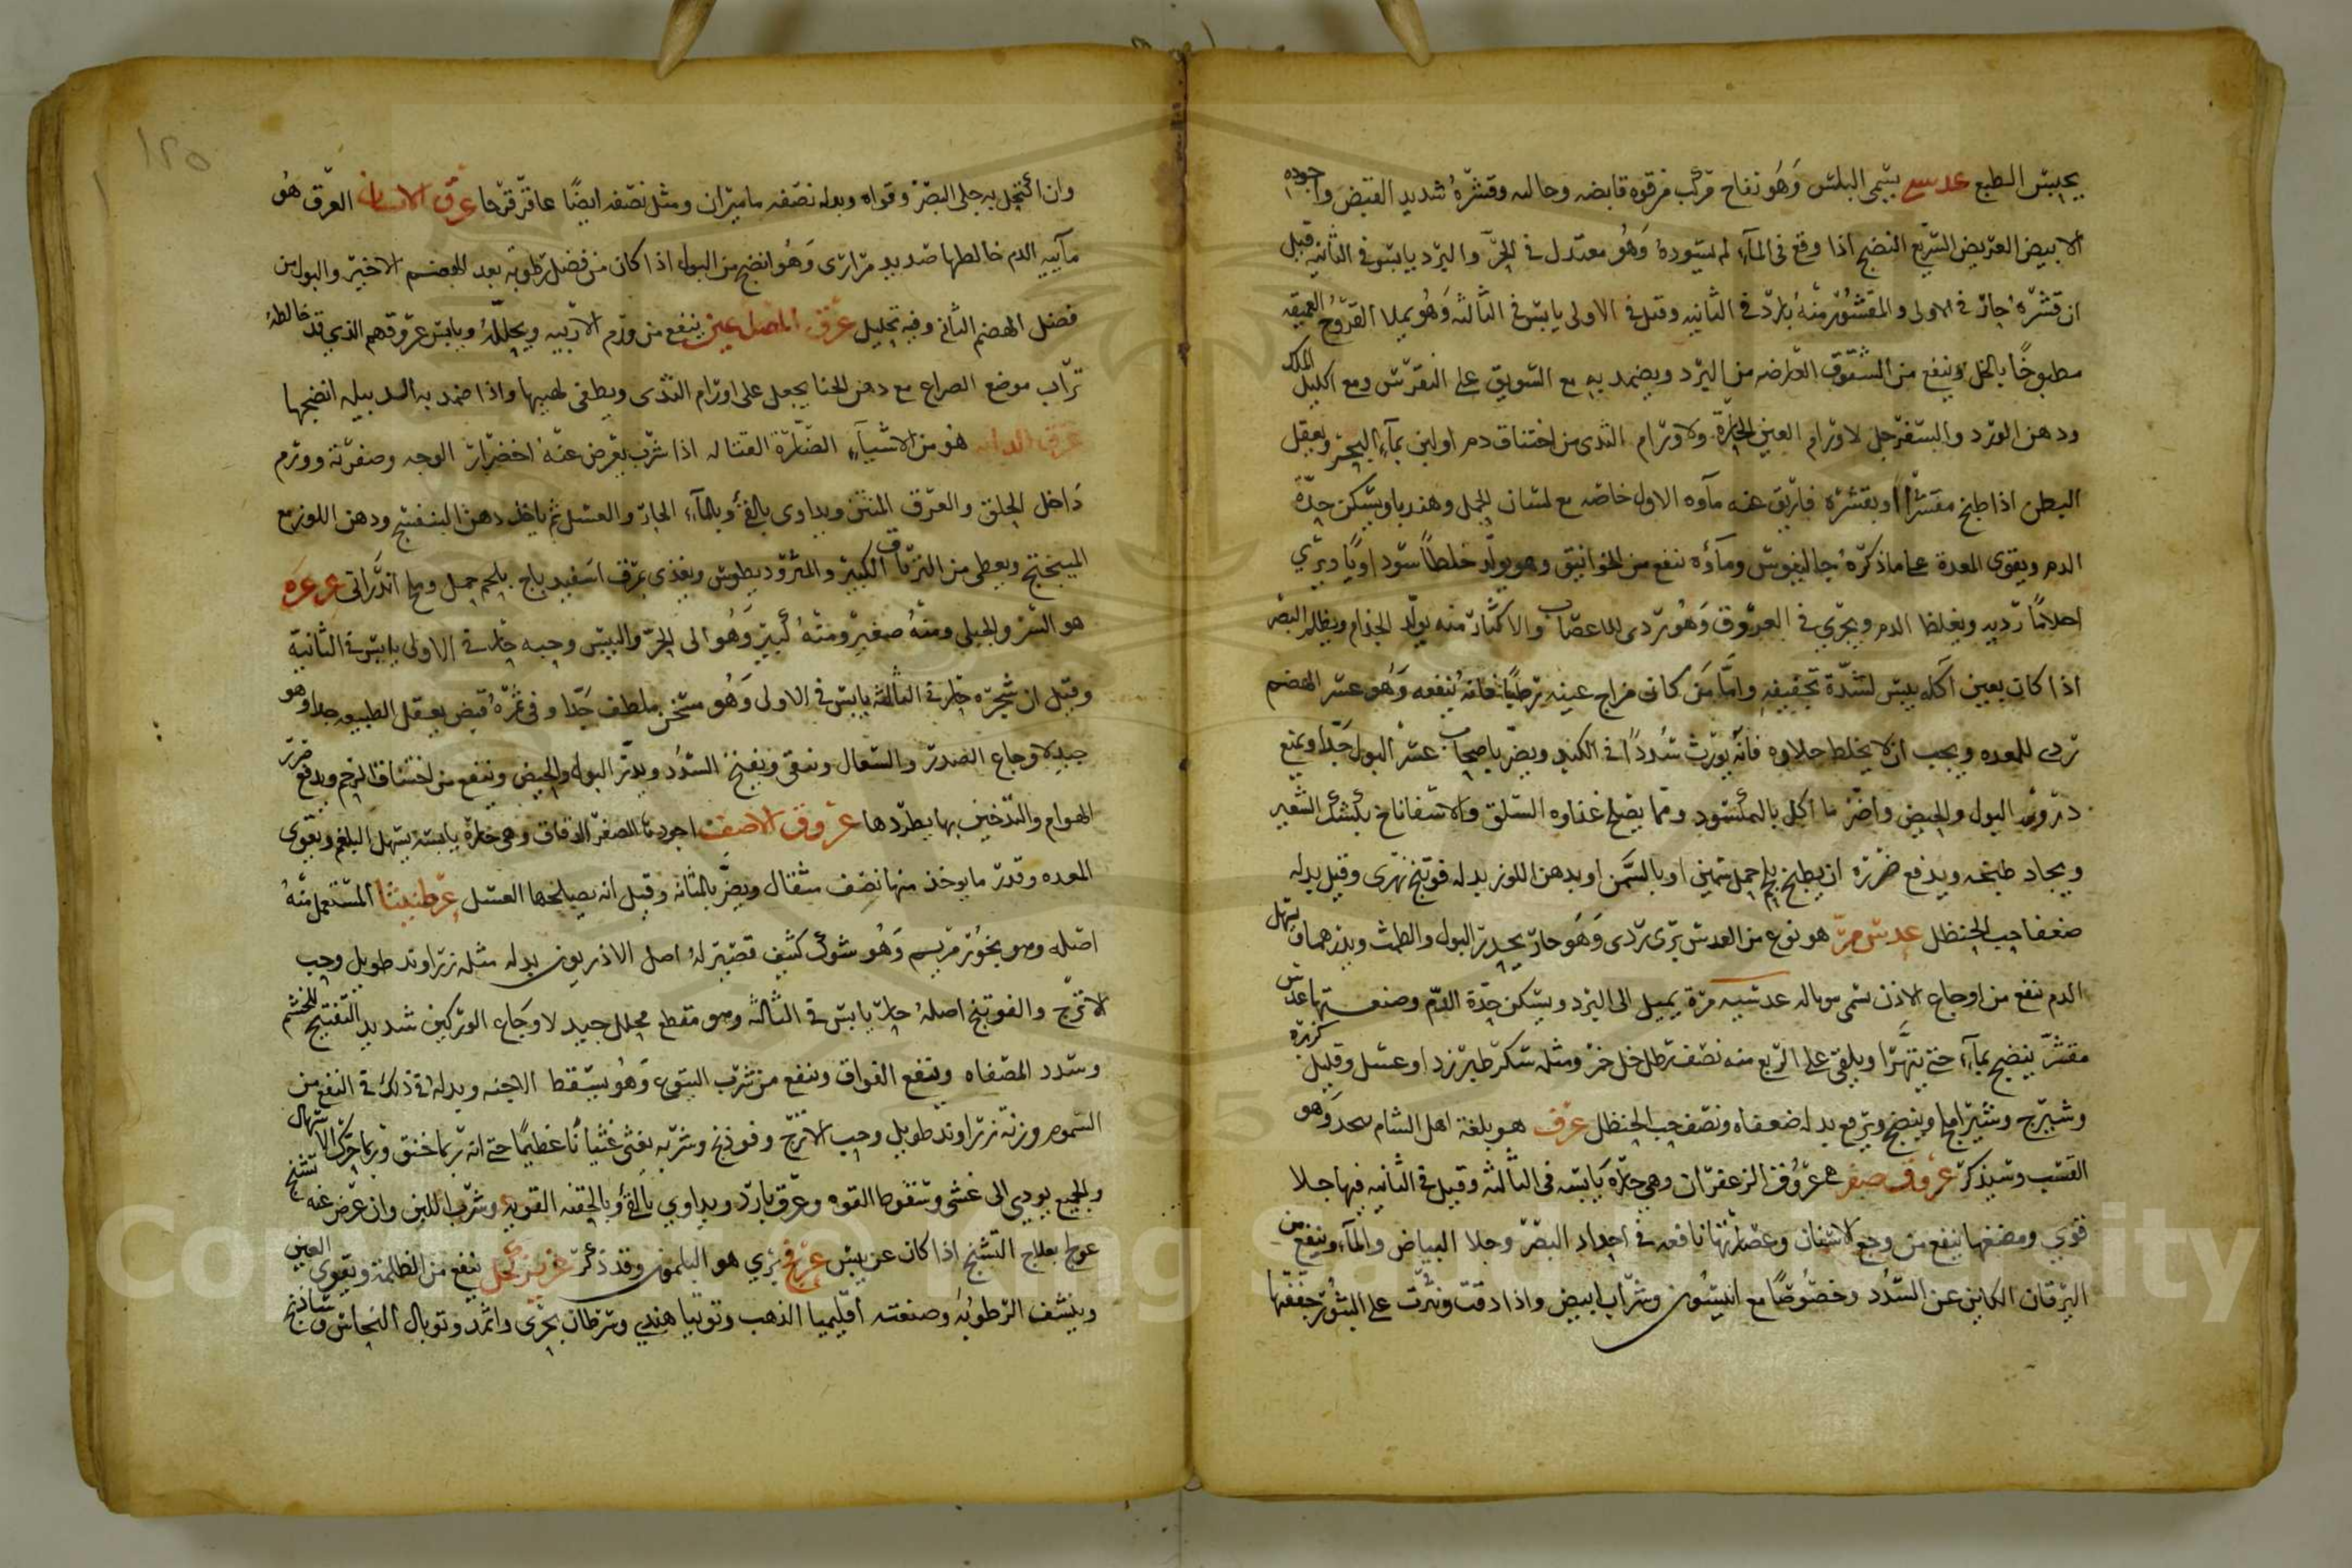 يحبس الطبع عدس يسمى البلس وهو نفاخ مركب من قوه قابضه وجاليه وقشره شديد القبض واجوده
الابيض العريض السريع النضج اذا وقع في المآء لم يسوده وهو معتدل في الحر والبرد يابس في الثانيه قيل
ان قشره حار في الاولى والمقشور منه بارد في الثانيه وقيل في الاولى يابس في الثالثه وهو يملا القروح العميقه
مطبوخًا بالخل وينفع من الشقوق العارضه من البرد ويضمد به مع السويق على النقرس ومع اكليل الملك
ودهن الورد والسفرجل لاورام العين الحارة ولاورام الثدى من اختناق دم او لبن بمآء البحر ويعقل
البطن اذا طبخ مقشرًا او بقشره فاريق عنه مآوه الاول خاصه مع لسان الحمل وهندبا ويسكن حدة
الدم ويقوى المعدة على ماذكره جالينوس ومآؤه ننفع من الخوانيق وهو يولد خلطًا سوداويًا ويري
احلامًا رديه ويغلظ الدم ويجري في العروق وهو ردى للاعصاب والاكثار منه يولد الجذام ويظلم البصر
اذا كان بعين آكله يبس لشدة تجفيفه واما من كان مزاج عينه رطبًا فانه ينفعه وهو عسر الهضم
ردى للمعده ويجب ان لا يخلط حلاوه فانه يورث سددًا في الكبد ويضر باصحاب عسر البول جدًا ويمنع
درور البول والحيض واضر ما اكل بالمكسود ومما يصلح غذاوه السلق والاسفاناخ بكشك الشعير
ويجاد طبخه ويدفع ضرره ان يطبخ بلحم حمل سمين او بالسمن او بدهن اللوز بدله فوتنج نهرى وقيل بدله
ضعفا حب الحنظل عدس مر هو نوع من العدس برى ردى وهو حار يحدر البول والطمث ويدرهما ويسهل
الدم نفع من اوجاع الاذن عدسيه مرة يميل الى البرد ويسكن حدة الدم وصنعتها عدس
مقشر ينضج بمآء حتى يتهرا ويلقى على الربع منه نصف رطل خل خمر ومثله سكر طبرزد او عسل وقليل كزبره
وشيرج وينضج ويرفع بدله ضعفاه ونصف حب الحنظل عرف هو بلغة اهل الشام وهو
القسب وسيذكر عروق صفر هى عروق الزعفران وهي حاره يابسه في الثالثه وقيل في الثانيه فيها جلا
قوي ومضغها ينفع من وجع الاسنان وعصارتها نافعه في احداد البصر وجلا البياض والمآء وينفع من
اليرقان الكاين عن السدد وخصوصًا مع انيسون وشراب ابيض واذا دقت ونثرت على البثور جففها
وان اكتحل به جلى البصر وقواه وبدله نصفه ماميران ومثل نصفه ايضًا عاقرقرحا عرق الانسان العرق هو
مآييه الدم خالطها صديد مرارى وهو انضج من البول اذا كان من فضل رطوبه بعد الهضم الاخير والبول من
فضل الهضم الثانى وفيه تحليل عرق المصارعين ينفع من ورم الاربيه ويحلله ويابس عروقهم الذي قد خالطه
تراب موضع الصراع مع دهن الحنا يجعل على اورام الثدى ويطفى لهيبها واذا ضمد به الدبيله انضجها
عرق الدابه هو من الاشيآء الضارة القتاله اذا شرب يعرض عنه اخضرار الوجه وصفرته وورم
داخل الحلق والعرق المنتن ويداوى بالقئ وبالمآء الحار والعسل ثم ياخذ دهن البنفسج ودهن اللوز مع
الميبختج ويعطى من الترياق الكبير والمثروديطوس ويغذى بمرق اسفيدباج بلحم حمل وملح اندرانى عرعره
هو السرو الجبلي ومنه صغير ومنه كبير وهو الى الحر واليبس وحبه حار في الاولى يابس في الثانية
وقيل ان شجره حار في الثالثه يابس في الاولى وهو مسخن ملطف جدًا وفي ثمره قبض يعقل الطبيعه جدا وهو
جيد لاوجاع الصدر والسعال وينقى ويفتح السدد ويدر البول والحيض وينفع من اختناق الرحم ويدفع ضرر
الهوام والتدخين بها يطردها عروق الاصف اجودها الصفر الدقاق وهى حارة يابسة يسهل البلغم ويقوى
المعده وقدر ما يوخذ منها نصف مثقال ويضر بالمثانه وقيل انه يصلحها العسل عرطنيثا المستعمل منه
اصله وهو بخور مريم وهو شوك كثيف قصير له اصل الاذريون بدله مثله زراوند طويل وحب
الاترج والفوتنج اصله حار يابس في الثالثه وهو مقطع محلل جيد لاوجاع الوركين شديد التفتيح للخشم
وسدد المصفاه وينفع الفواق وينفع من شرب اليتوع وهو يسقط الاجنه وبدله في ذلك في النفع من
السموم وزنه زراوند طويل وحب الاترج وفوذنج وشربه يغثى غثيانًا عظيمًا حتى انه ربما خنق وربما حرك الاسهال
والجميع يودي الى غشى وسقوط القوه وعرق بارد ويداوي بالقئ وبالحقنه القويه وشرب اللبن وان عرض عنه تشنج
عولج بعلاج التشنج اذا كان عن يبس عرفج بري هو وقد ذكر عزيز كحل ينفع من الظلمة ويقوى العين
وينشف الرطوبه وصنعته اقليميا الذهب وتوتيا هندي وسرطان بحرى واثمد وتوبال النحاس وشاذنج
١٢٥
Copyright © King Saud University